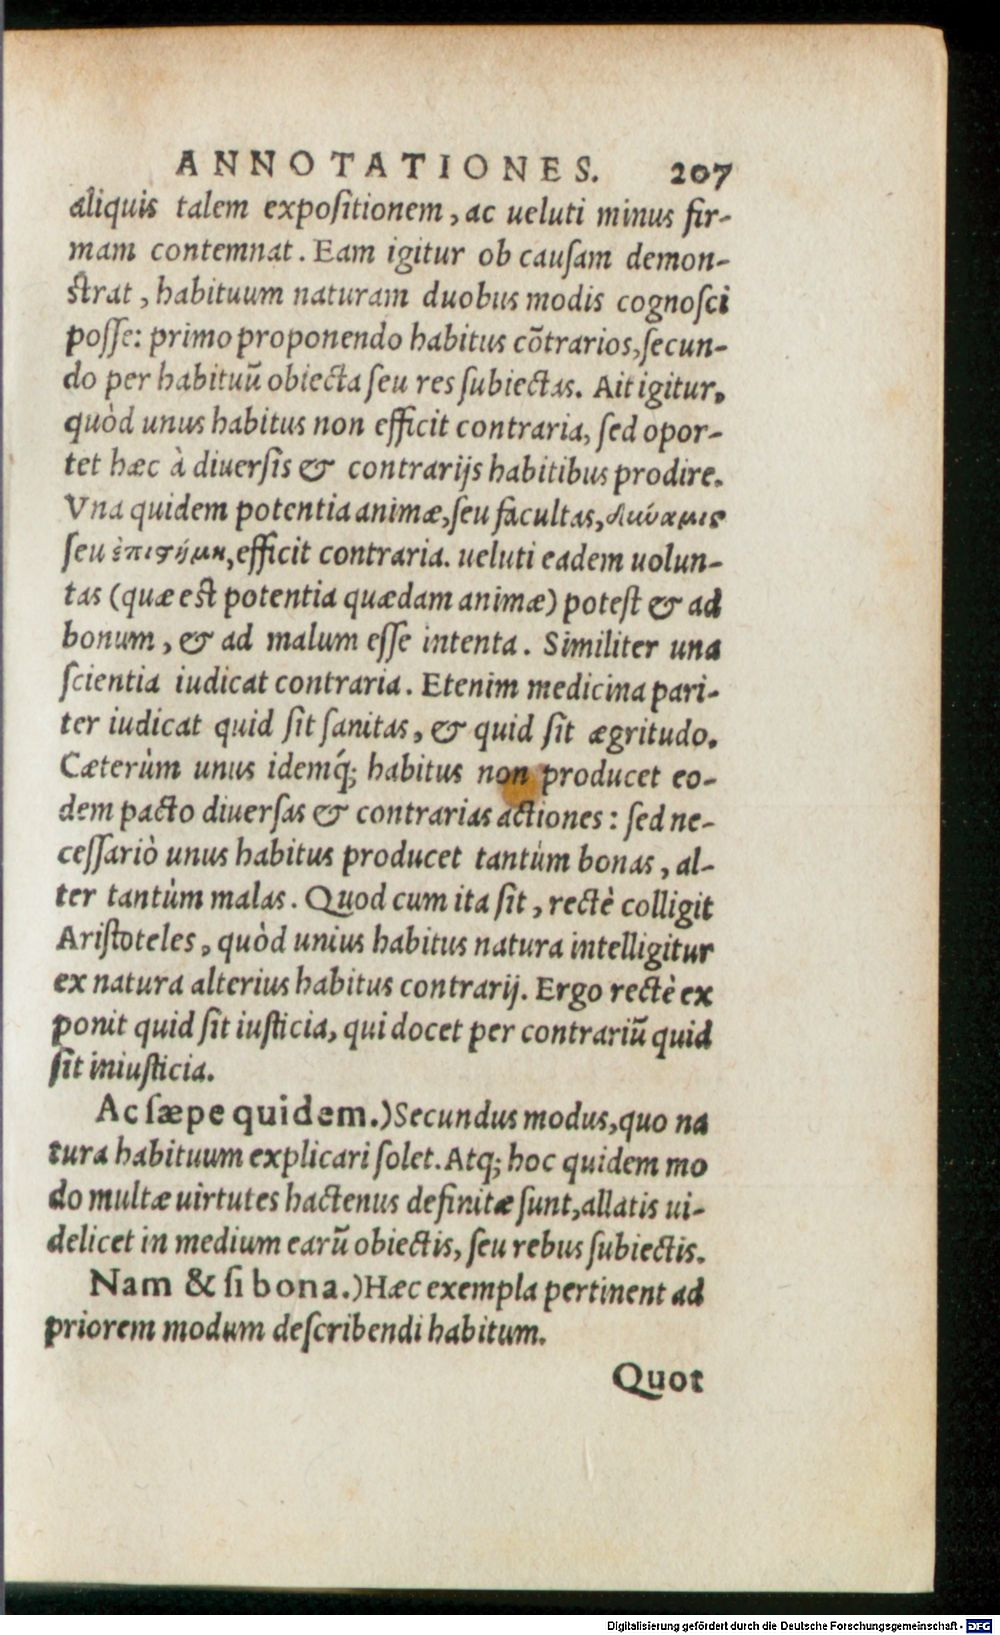 ANNOTATIONES. 207
aliquis talem expoſitionem, ac ueluti minus fir-
mam contemnat. Eam igitur ob cauſam demon-
ſtrat, habituum naturam duobus modis cognoſci
poſſe: primo proponendo habitus cõtrarios, ſecun-
do per habituũ obiecta ſeu res ſubiectas. Ait igitur,
quòd unus habitus non efficit contraria, ſed opor-
tet hæc à diuerſis & contrarijs habitibus prodire.
Vna quidem potentia animæ, ſeu facultas, δύναμις
ſeu ἐπιστήμη, efficit contraria. ueluti eadem uolun-
tas (quæ eſt potentia quædam animæ) poteſt & ad
bonum, & ad malum eſſe intenta. Similiter una
ſcientia iudicat contraria. Etenim medicina pari-
ter iudicat quid ſit ſanitas, & quid ſit ægritudo.
Cæterùm unus idemq́; habitus non producet eo-
dem pacto diuerſas & contrarias actiones: ſed ne-
ceſſariò unus habitus producet tantùm bonas, al-
ter tantùm malas. Quod cum ita ſit, rectè colligit
Ariſtoteles, quòd unius habitus natura intelligitur
ex natura alterius habitus contrarij. Ergo rectè ex
ponit quid ſit iuſticia, qui docet per contrariũ quid
ſit iniuſticia.
Ac ſæpe quidem.) Secundus modus, quo na
tura habituum explicari ſolet. Atq; hoc quidem mo
do multæ uirtutes hactenus definitæ ſunt, allatis ui-
delicet in medium earũ obiectis, ſeu rebus ſubiectis.
Nam & ſi bona.) Hæc exempla pertinent ad
priorem modum deſcribendi habitum.
Quot
Digitalisierung gefördert durch die Deutsche Forschungsgemeinschaft - DFG